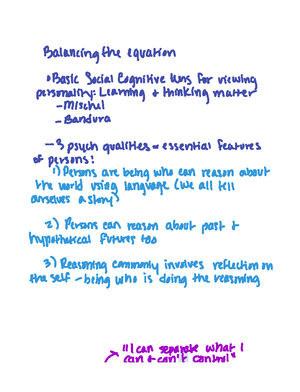 Balancing the equation
• Basic Social Cognitive lens for viewing
personality: Learning + thinking matter
- Mischel
- Bandura
- 3 psych qualities = essential features
of persons:
1) Persons are being who can reason about
the world using language (we all tell
ourselves a story)
2) Persons can reason about past +
hypothetical futures too
3) Reasoning commonly involves reflection on
the self - being who is doing the reasoning
"I can separate what I
can + can't control"